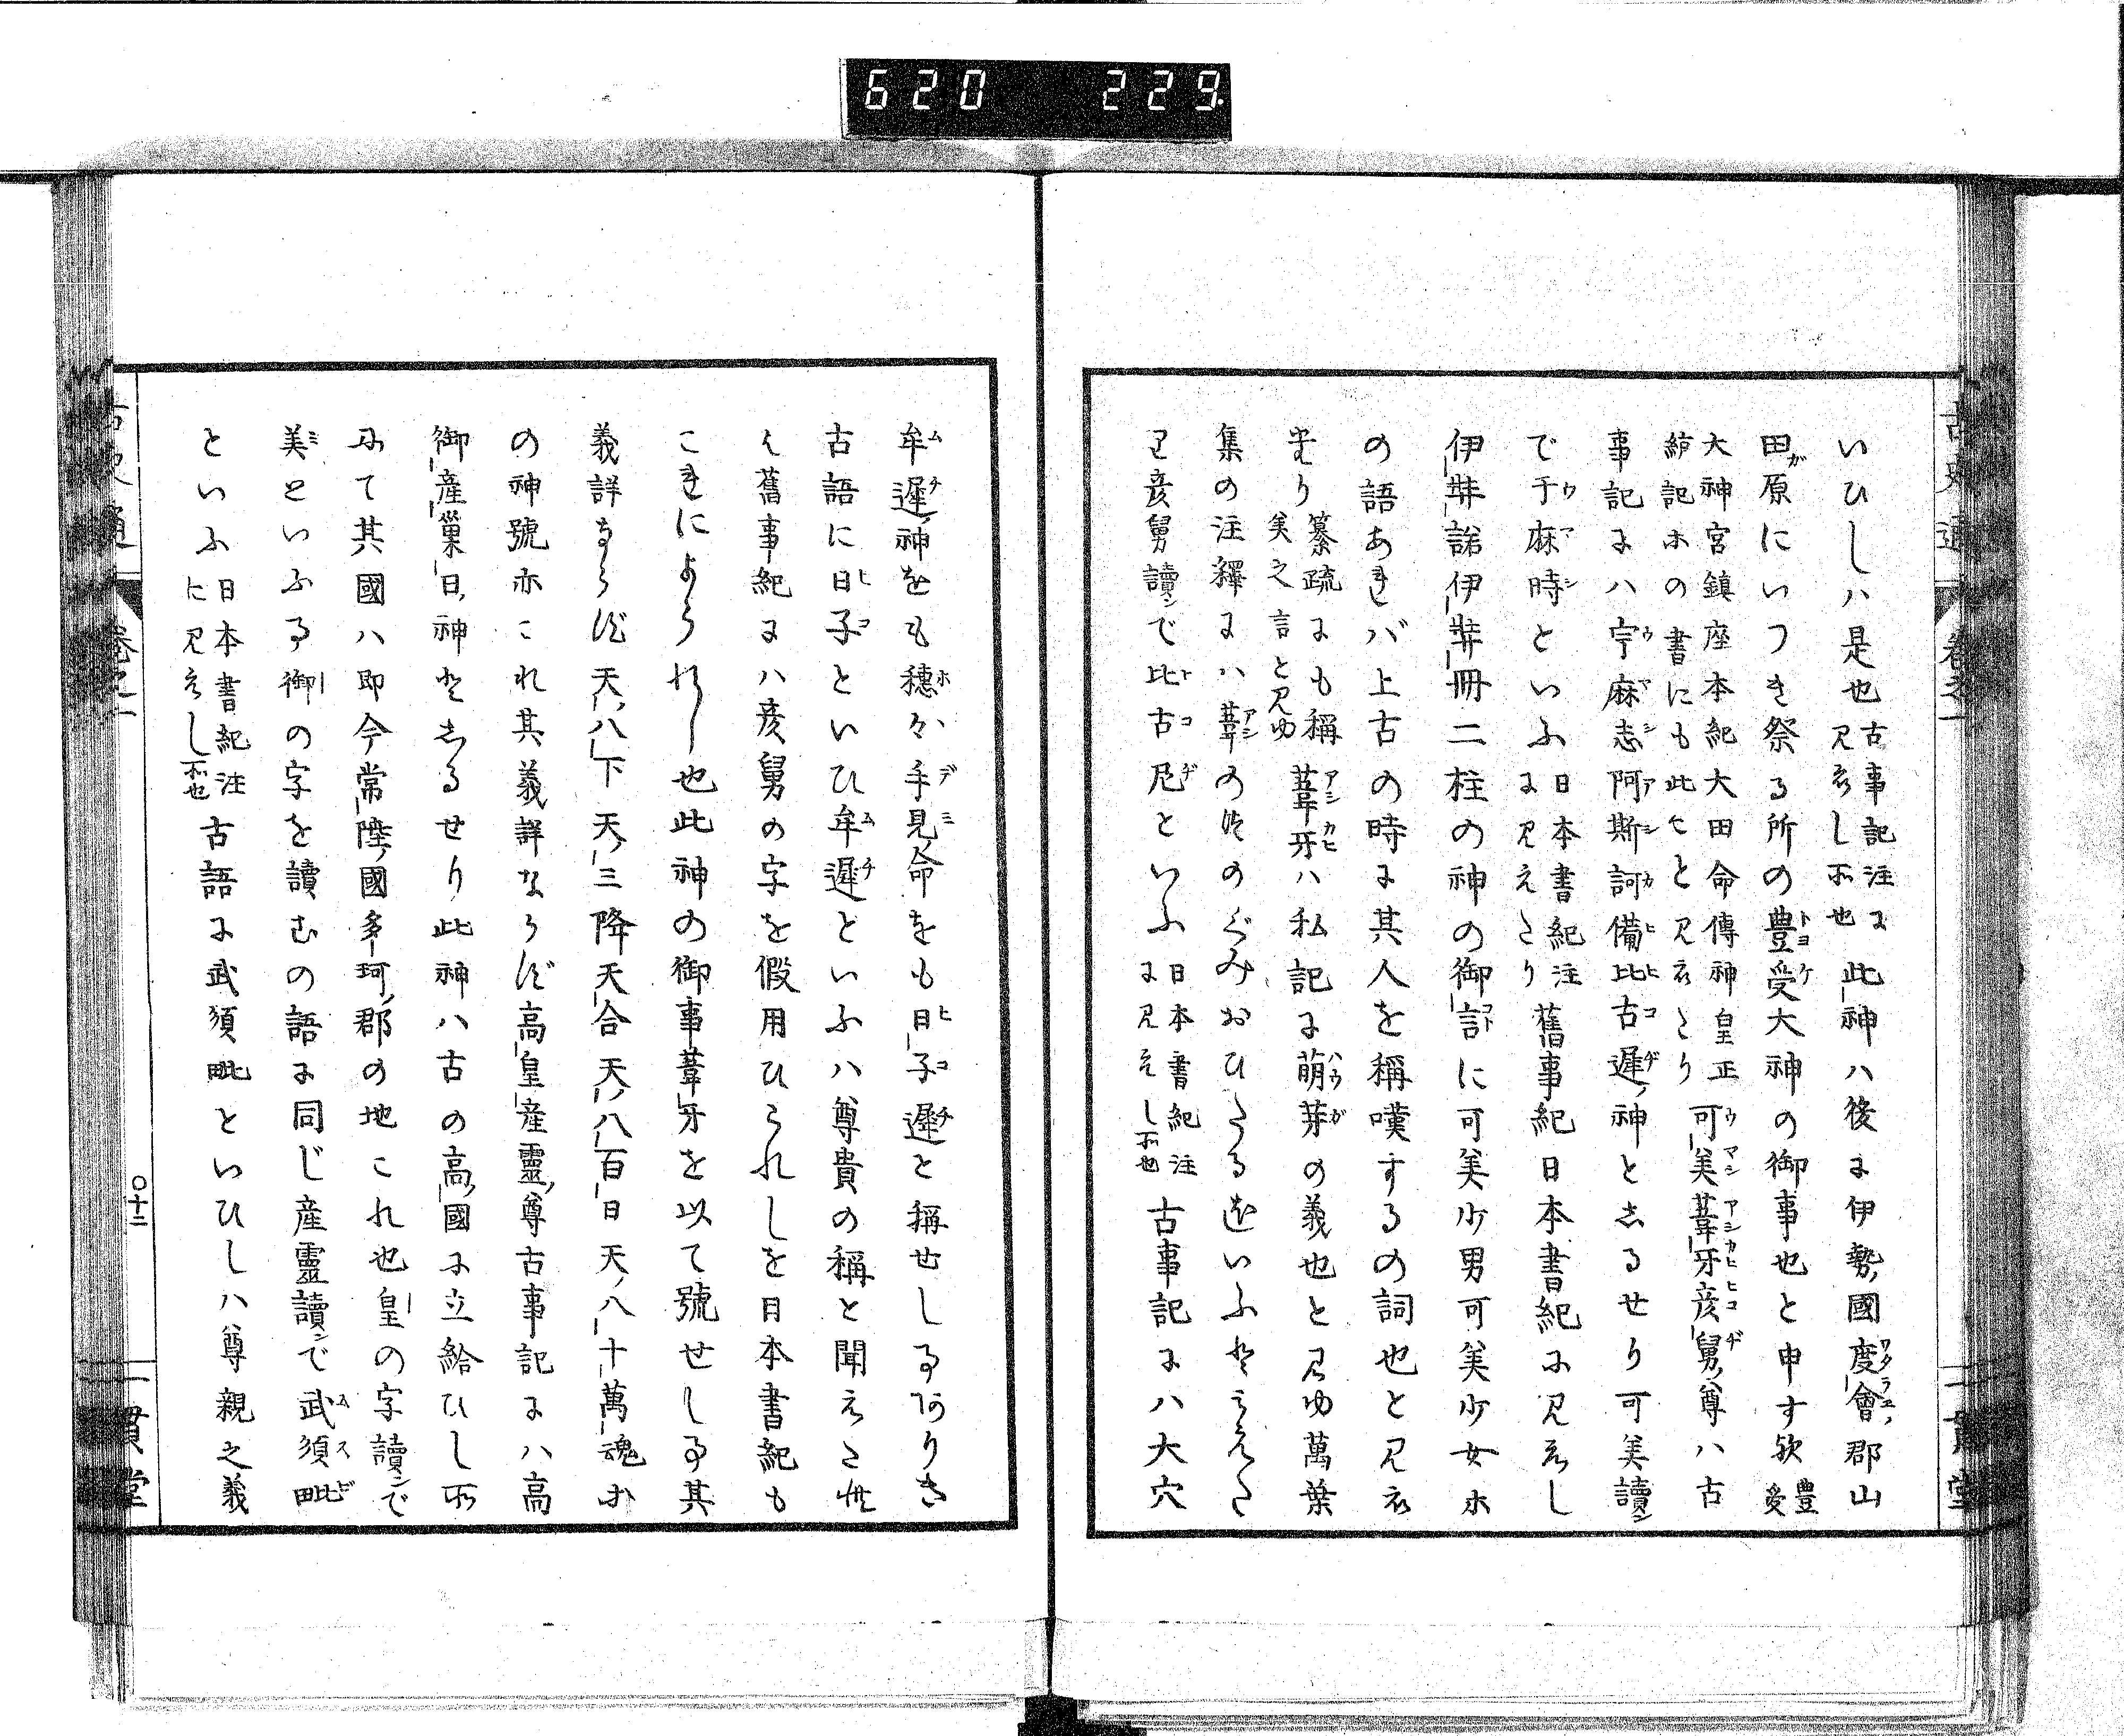 620 229
古史通 卷之一
いひしハ是也 古事記注に見えし所也 此神ハ後に伊勢國度會郡山
田原にいつき祭る所の豊受大神の御事也と申す欤 豊受
大神宮鎮座本紀大田命傳神皇正統記ホの書にも此なと見えたり 可美葦牙彦舅尊ハ古
事記にハ宇麻志阿斯訶備比古遲神としるせり可美讀ン
で于麻時といふ 日本書紀注に見えたり 舊事紀日本書紀に見えし
伊弉諾伊弉冊二柱の神の御言に可美少男可美少女ホ
の語あれバ上古の時に其人を稱嘆するの詞也と見え
たり 纂疏にも稱美之言と見ゆ 葦牙ハ私記に萌芽の義也と見ゆ萬葉
集の注釋にハ葦のつのぐみおひたるをいふと見えた
り彦舅讀ンで比古尼といふ 日本書紀注に見えし所也 古事記にハ大穴
牟遲神をも穗々手見命をも日子遲と稱せし事ありき
古語に日子といひ牟遲といふハ尊貴の稱と聞えたれ
ど舊事紀にハ彦舅の字を假用ひられしを日本書紀も
これによられし也此神の御事葦牙を以て號せし事其
義詳ならず天八下天三降天合天八百日天八十萬魂ホ
の神號亦これ其義詳ならず高皇産靈尊古事記にハ高
御産巢日神としるせり此神ハ古の高國に立給ひし所
にて其國ハ即今常陸國多珂郡の地これ也皇の字讀ンで
美といふる御の字を讀むの語に同じ産靈讀ンで武須毗
といふ 日本書紀注に見えし所也 古語に武須毗といひしハ尊親之義
古史通 卷之一 〇十二 一貫堂
一貫堂